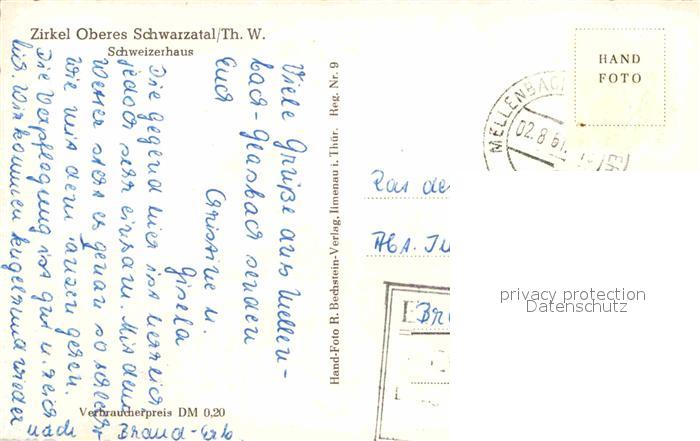 Zirkel Oberes Schwarzatal/Th. W.
Schweizerhaus
Viele Grüße aus Mellen-
bach-Glasbach senden
Euch
Christine u.
Gisela
Die Gegend hier ist herrlich
jedoch sehr einsam. Mit dem
Wetter steht es genau so schlecht
wie mit dem tanzen gehen.
Die Verpflegung ist gut u. reich
lich. Wir kommen kugelrund wieder
nach Brand-Erb
Verbraucherpreis DM 0,20
Hand-Foto R. Bechstein-Verlag, Ilmenau i. Thür. Reg. Nr. 9
HAND
FOTO
MELLENBACH
02.8.61.
Rat de
Abt. Ju
Bra
privacy protection
Datenschutz